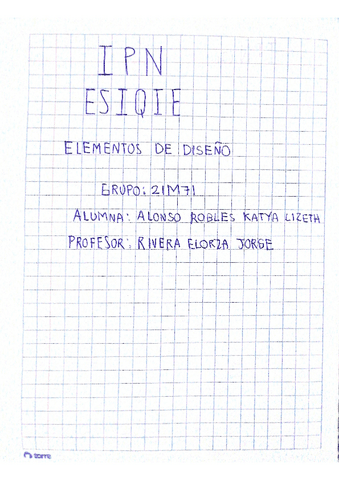 IPN
ESIQIE
ELEMENTOS DE DISEÑO
GRUPO: 2IM71
ALUMNA: ALONSO ROBLES KATYA LIZETH
PROFESOR: RIVERA ELORZA JORGE
torre